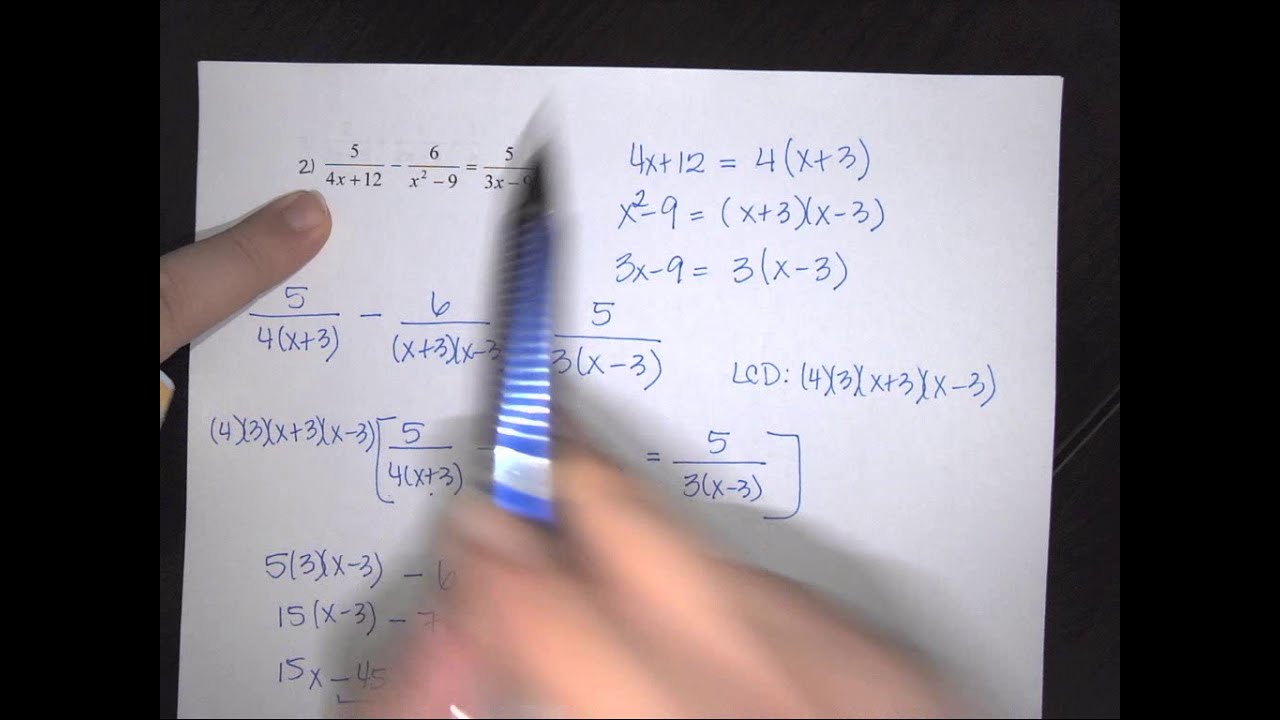 2) 5/(4x+12) − 6/(x²−9) = 5/(3x−9
4x+12 = 4(x+3)
x²-9 = (x+3)(x-3)
3x-9 = 3(x-3)
5/(4(x+3)) − 6/((x+3)(x-3 5/(3(x-3))
LCD: (4)(3)(x+3)(x-3)
(4)(3)(x+3)(x-3)[5/(4(x+3)) − = 5/(3(x-3))]
5(3)(x-3) − 6
15(x-3) − 7
15x − 45